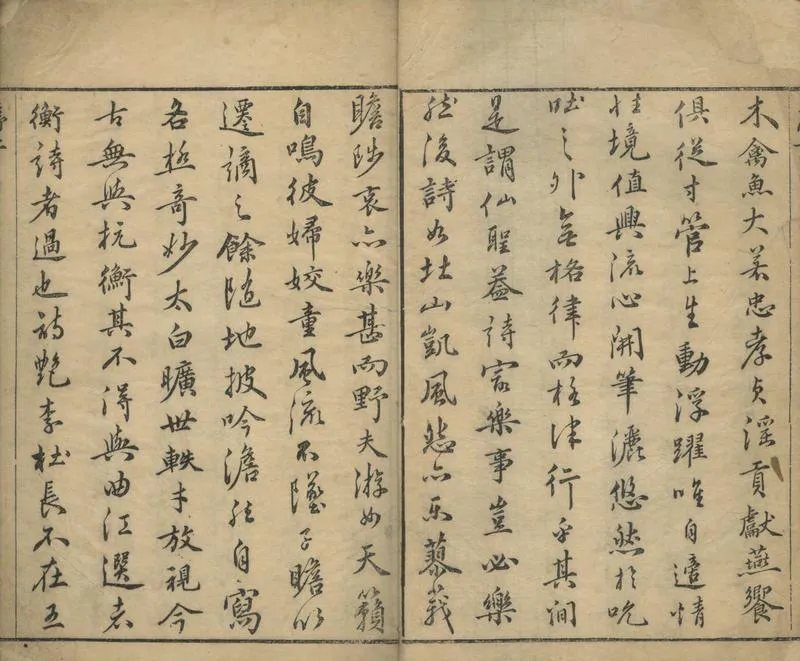 木禽魚大若忠孝貞淫貢獻燕饗
俱從寸管上生動浮躍唯自適情
性境值興流心開筆灑悠然於吮
咄之外無格律而格律行乎其間
是謂仙聖蓋詩家樂事豈必樂
然後詩如北山凱風愁亦乐蓼莪
瞻陟哀亦樂甚而野夫游女天籟
自鳴彼婦姣童風流不墜子瞻以
遷謫之餘隨地披吟澹然自寫
各極奇妙太白曠世軼才放視今
古無與抗衡其不得與曲江選者
衡詩者過也詩艷李杜長不在五